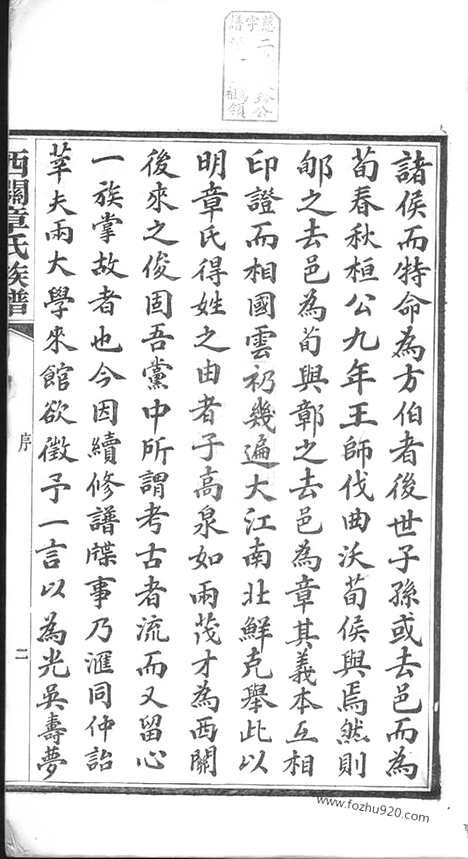 諸侯而特命為方伯者後世子孫或去邑而為
荀春秋桓公九年王師伐曲沃荀侯與焉然則
郇之去邑為荀與鄣之去邑為章其義本互相
印證而相國雲礽幾遍大江南北鮮克舉此以
明章氏得姓之由者子高泉如兩茂才為西關
後來之俊固吾黨中所謂考古者流而又留心
一族掌故者也今因續修譜牒事乃滙同仲詒
莘夫兩大學來館欲徵予一言以為光吳壽夢
西關章氏族譜
序
二
www.fozhu920.com